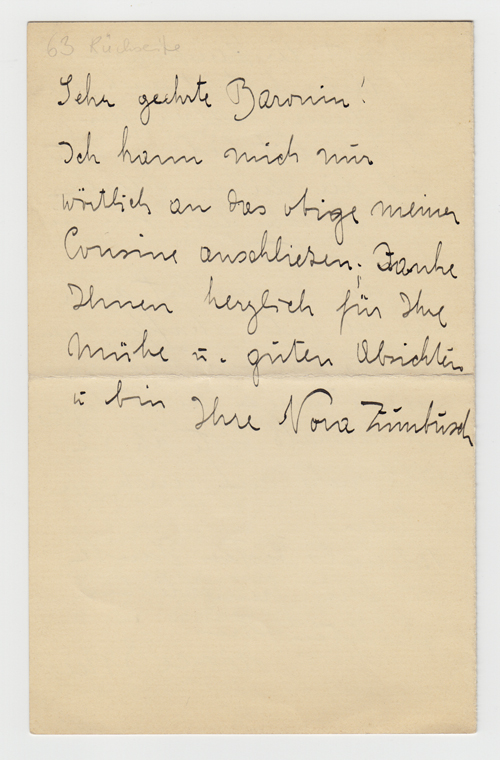 63 Rückseite
Sehr geehrte Baronin!
Ich kann mich nur
wörtlich an das obige meiner
Cousine anschließen; Danke
Ihnen herzlich für Ihre
Mühe u. guten Absichten
u bin Ihre Nora Zumbusch